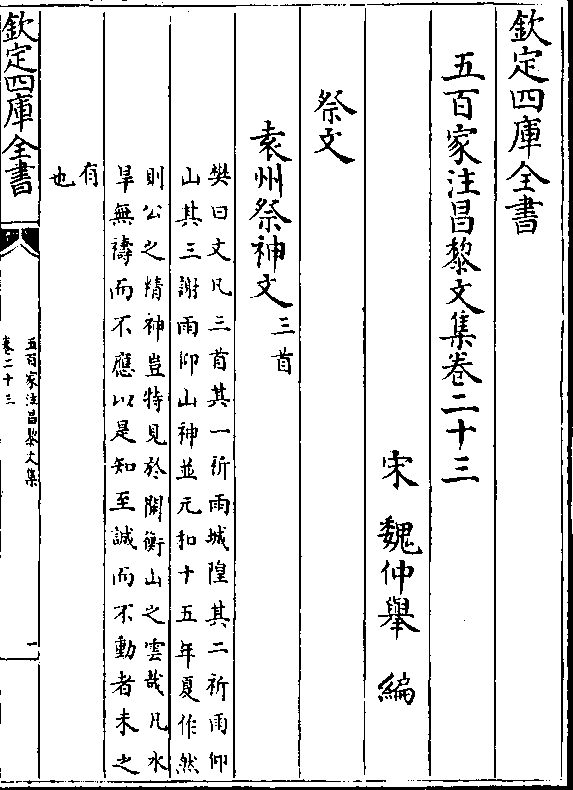 欽定四庫全書
五百家注昌黎文集卷二十三
宋 魏仲舉 編
祭文
袁州祭神文三首
樊曰文凡三首其一祈雨城隍其二祈雨仰
山其三謝雨仰山神並元和十五年夏作然
則公之精神豈特見於開衡山之雲哉凡水
旱無禱而不應以是知至誠而不動者未之
有
也
欽定四庫全書
五百家注昌黎文集
卷二十三
一